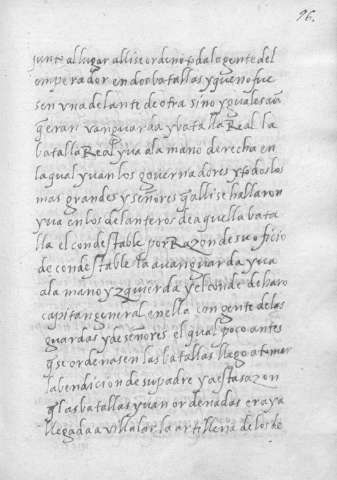 96.
junto al lugar alli se ordeno toda la gente del
emperador en dos batallas y que no fue
sen vna delante de otra sino yguales avn
q̃ eran vanguarda y batalla Real la
batalla Real yua a la mano derecha en
la qual yuan los gouernadores y todos los
mas grandes y señores q̃ alli se hallaron
yua en los delanteros de aquella bata
lla el condestable por Razon de su oficio
de condestable la avanguarda yua
a la mano yzquierda y el conde de haro
capitan general en ella con gente de las
guardas y de señores el qual poco antes
q̃ se ordenasen las batallas llego a tomar
la bendicion de su padre y a esta sazon
q̃ las batallas yuan ordenadas era ya
llegada a villalar la artilleria de los